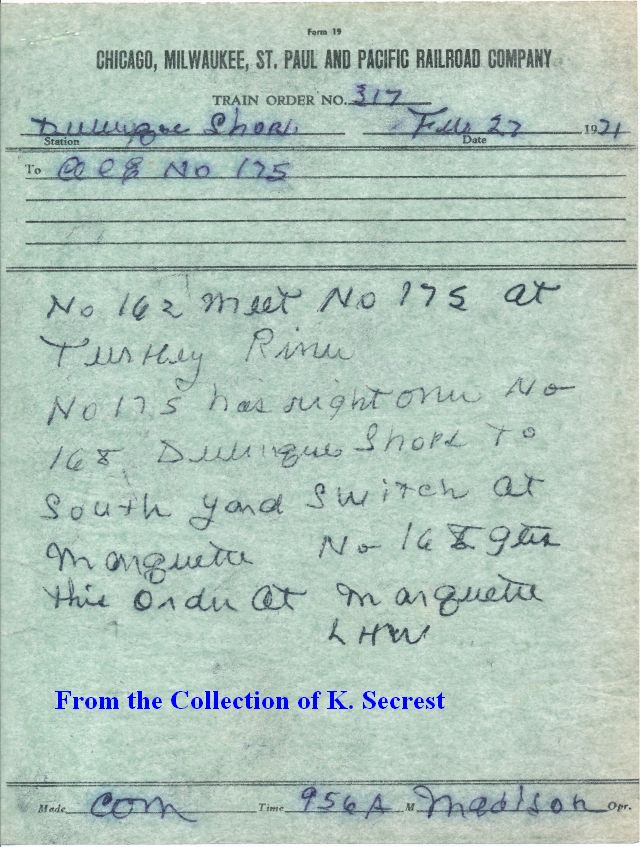 Form 19
CHICAGO, MILWAUKEE, ST. PAUL AND PACIFIC RAILROAD COMPANY
TRAIN ORDER NO. 317
Dubuque Shops Feb 27 1971
Station Date
To C&E No 175
No 162 Meet No 175 at
Turkey River
No 175 has right over No
168 Dubuque Shops To
South Yard Switch at
Marquette No 168 gets
this Order at Marquette
LHW
From the Collection of K. Secrest
Made Com Time 956A M Madison Opr.